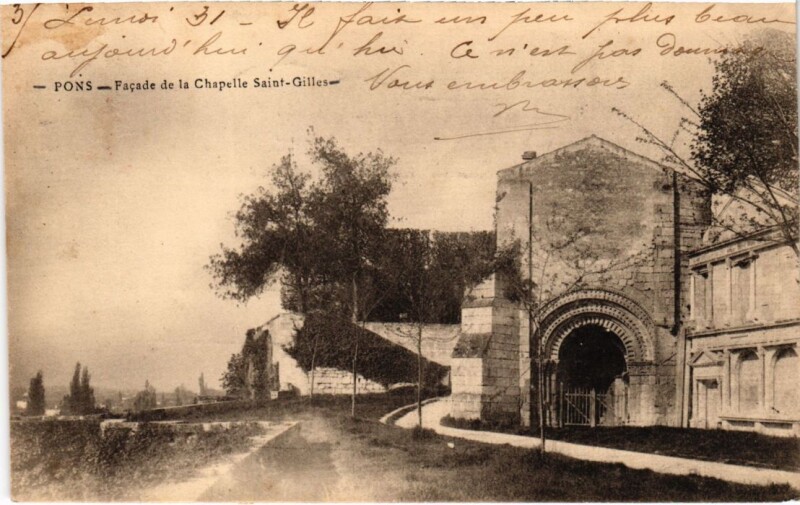 Lundi 31 - Il fait un peu plus beau
aujourd'hui qu'hier. Ce n'est pas
Vous embrassons
— PONS — Façade de la Chapelle Saint-Gilles —